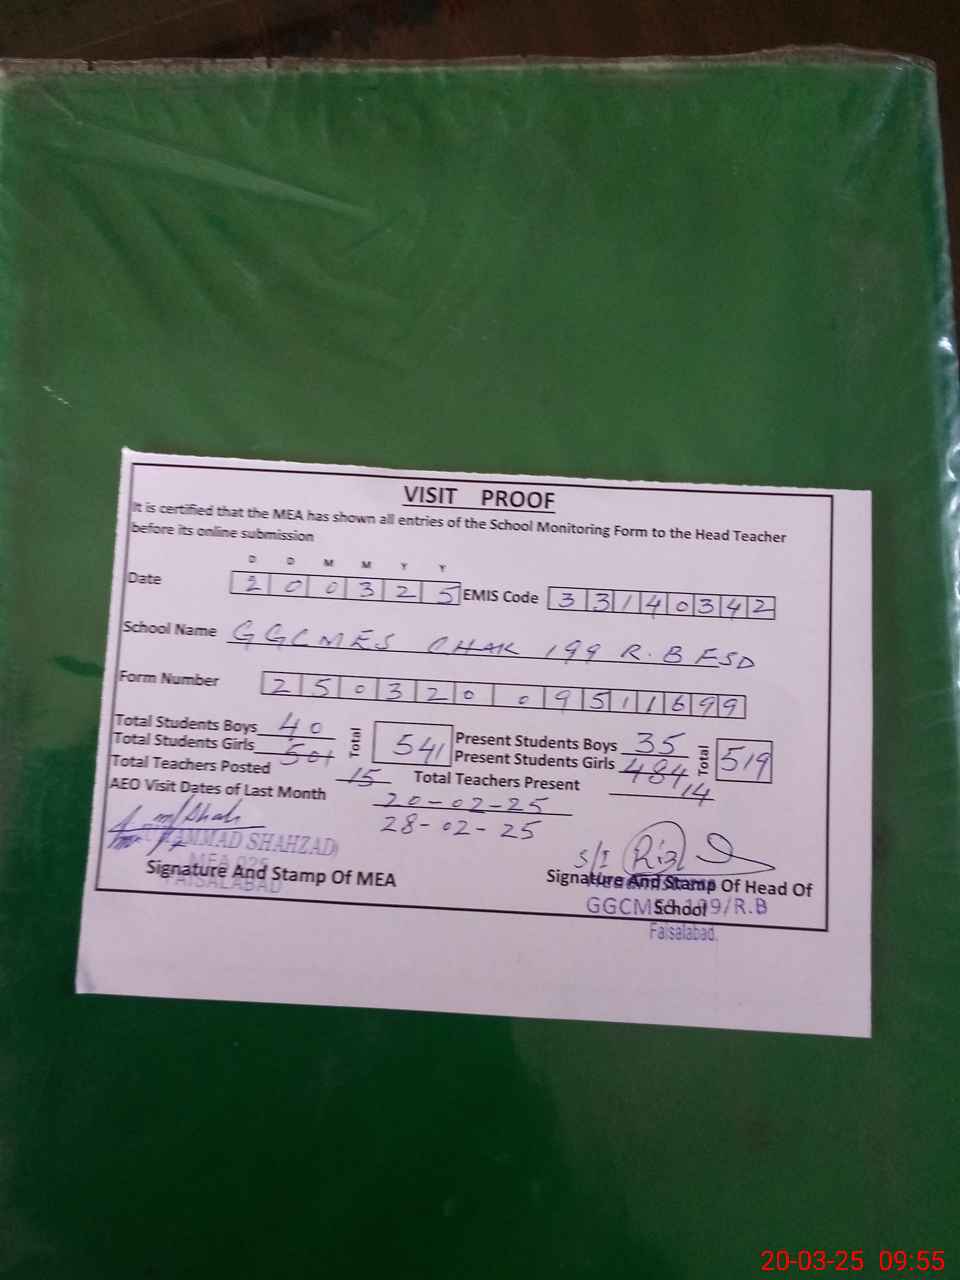 VISIT PROOF
It is certified that the MEA has shown all entries of the School Monitoring Form to the Head Teacher
before its online submission
D D M M Y Y
Date 2 0 0 3 2 5 EMIS Code 3 3 1 4 0 3 4 2
School Name GGCMES CHAK 199 R.B FSD
Form Number 2 5 0 3 2 0 0 9 5 1 1 6 9 9
Total Students Boys 40 Total 541 Present Students Boys 35 Total 519
Total Students Girls 501 Present Students Girls 484
Total Teachers Posted 15 Total Teachers Present 14
AEO Visit Dates of Last Month 20-02-25
28-02-25
AMMAD SHAHZAD
MEA
FAISALABAD
Signature And Stamp Of MEA
S/I Riz
Signature And Stamp Of Head Of
School
GGCMS 199/R.B
Faisalabad.
20-03-25 09:55